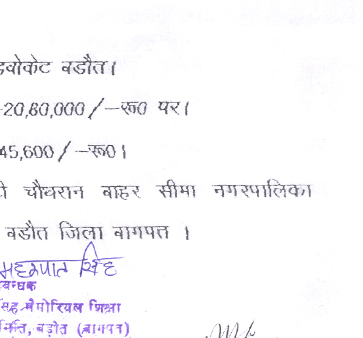 डवोकेट बडौत।
-20,80,000/-रू0 पर।
45,600/-रू0।
चौधरान बाहर सीमा नगरपालिका
बडौत जिला बागपत ।
सिंह
बन्धक
सिंह मैमोरियल शिक्षा
समिति, बड़ौत (बागपत)